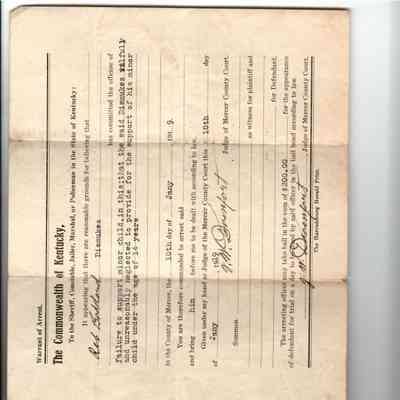 Warrant of Arrest.
The Commonwealth of Kentucky,
To the Sheriff, Constable, Jailer, Marshal, or Policeman in the State of Kentucky:
It appearing that there are reasonable grounds for believing that
Dismukes
has committed the offense of
failure to support minor child, in this: that the said Dismukes wilfully
and unreasonably neglected to provide for the support of his minor
child under the age of 14 years
in the County of Mercer, the 10th day of Jany 191 9.
You are therefore commanded to arrest said
and bring him before me to be dealt with according to law.
Given under my hand as Judge of the Mercer County Court this 10th day
of Jany 1919
Judge of Mercer County Court.
Summon
as witness for plaintiff and
for Defendant.
The arresting officer may take bail in the sum of $200.00 for the appearance
of defendant for trial on a day to be fixed by said officer in the bail bond according to law.
Judge of Mercer County Court.
The Harrodsburg Herald Print.